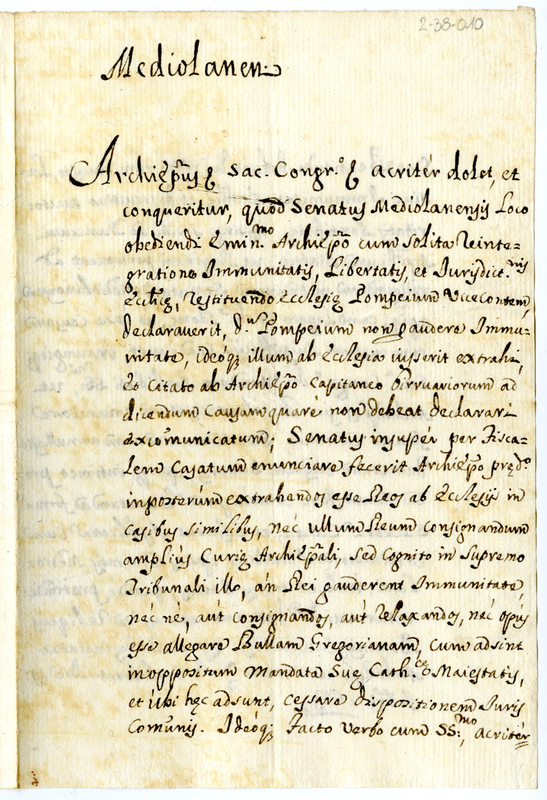 2-38-010
Mediolanen:
Archiep̃us Sac. Congr.º acritèr dolet, et
conqueritur, quòd Senatus Mediolanensis Loco
obediendi Emin.mo Archiep̃o cum solita reinte-
gratione Immunitatis, Libertatis, et Jurisdict.nis
Eccl̃icę, restituendo Ecclesię Pompeium Vicecomitem,
declaraverit, d.um Pompeium non gaudere Immu-
nitate, ideóq; illum ab Ecclesia iusserit extrahi,
Et Citato ab Archiep̃o Capitaneo Birruariorum ad
dicendum Causam quarè non debeat declarari
excom̃unicatum; Senatus insupèr per Fisca-
lem Casatum enunciare fecerit Archiep̃o pręd.º
in posterùm extrahendos esse Reos ab Ecclesijs in
casibus similibus, nèc ullum Reum consignandum
ampliùs Curię Archiep̃ali, sed Cognito in supremo
Tribunali illo, àn Rei gauderent Immunitate,
nèc nè, aùt consignandos, aùt relaxandos, nèc opùs
esse allegare Bullam Gregorianam, cùm adsint
in oppositum Mandata Suę Cath.cę Maiestatis,
et ùbi hęc adsunt, cessare dispositionem Iuris
Com̃unis. Ideóq; facto verbo cum SS:mo, acritèr